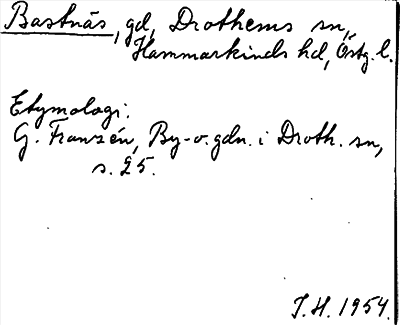 Bastnäs, gd, Drothems sn,
Hammarkinds hd, Östg. l.
Etymologi:
G. Franzén, By- o. gdn. i Droth. sn,
s. 25.
J.H. 1954.